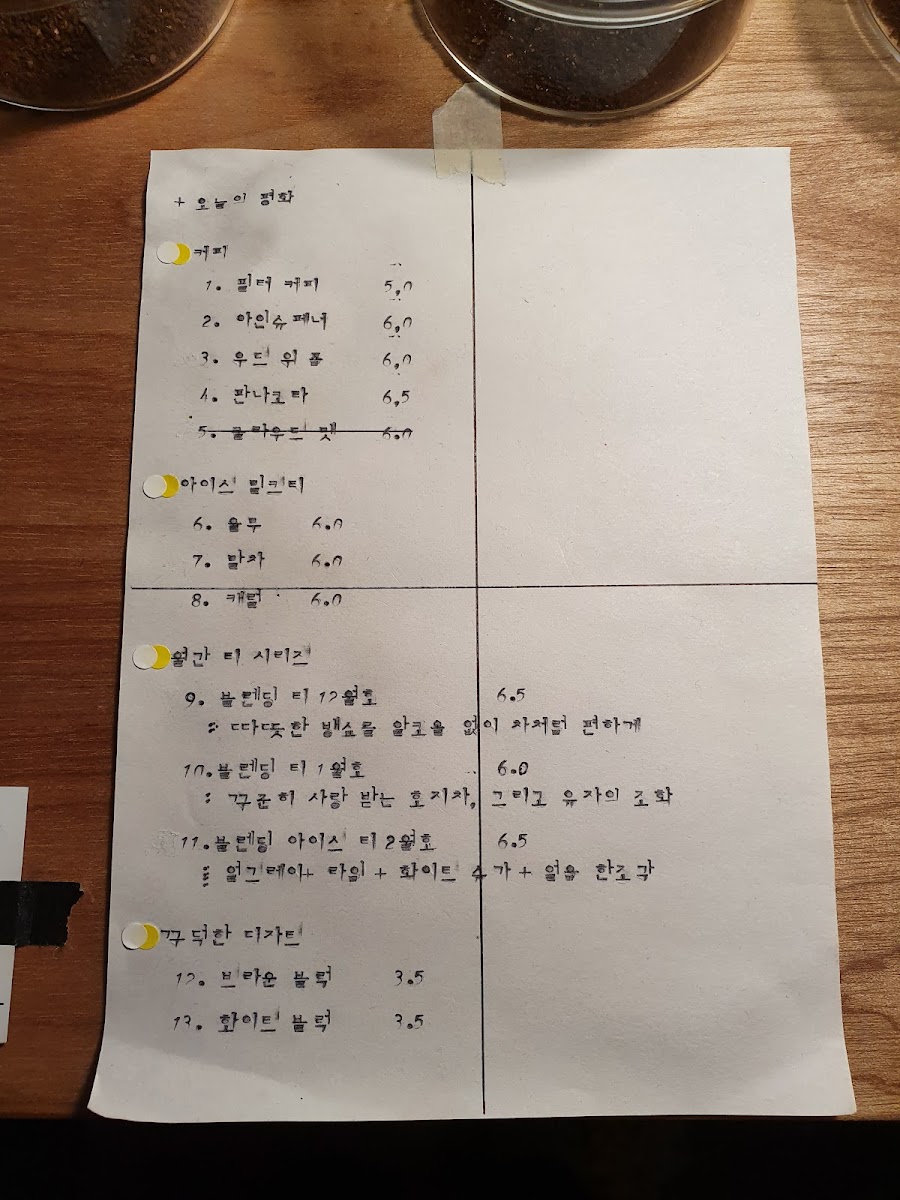 + 오늘의 평화
커피
1. 필터 커피 5.0
2. 아인슈페너 6.0
3. 우드 위 폼 6.0
4. 판나코타 6.5
5. 클라우드 6.0
아이스 밀크티
6. 율무 6.0
7. 말차 6.0
8. 캐럴 6.0
월간 티 시리즈
9. 블렌딩 티 12월호 6.5
: 따뜻한 뱅쇼를 알코올 없이 차처럼 편하게
10. 블렌딩 티 1월호 6.0
: 꾸준히 사랑 받는 호지차, 그리고 유자의 조화
11. 블렌딩 아이스 티 2월호 6.5
: 얼그레이+ 타임 + 화이트 슈가 + 얼음 한조각
꾸덕한 디저트
12. 브라운 블럭 3.5
13. 화이트 블럭 3.5